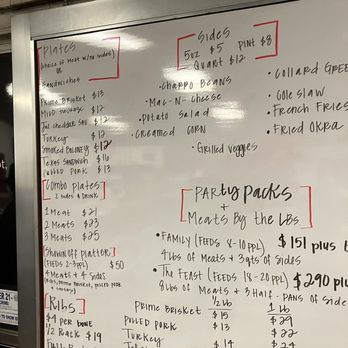 Plates
(choice of meat w/ two sides)
or
Sandwiches
Prime Brisket $13
Mild Sausage $12
Jal cheddar Sau $12
Turkey $12
Smoked Baloney $12
Texas Sandwich $16
Pulled Pork $13
Combo Plates
2 sides & drink
1 Meat $21
2 Meats $23
3 Meats $25
Shown Off Platter
(Feeds 2-3 ppl) $50
4 Meats + 4 Sides
Ribs
$4 per bone
1/2 Rack $19
Sides
5oz $5 Pint $8
Quart $12
• Charro Beans
• Mac-N-Cheese
• Potato Salad
• Creamed Corn
• Grilled Veggies
• Collard Gree
• Coleslaw
• French Fries
• Fried Okra
Party Packs
+
Meats By the Lbs
• Family (Feeds 8-10 ppl) $151 plus t
4 lbs of Meats + 3 qts of Sides
• The Feast (Feeds 18-20 ppl) $290 plu
8 lbs of Meats + 3 Half Pans of Side
1/2 lb 1 lb
Prime Brisket $15 $29
Pulled Pork $13 $22
Turkey